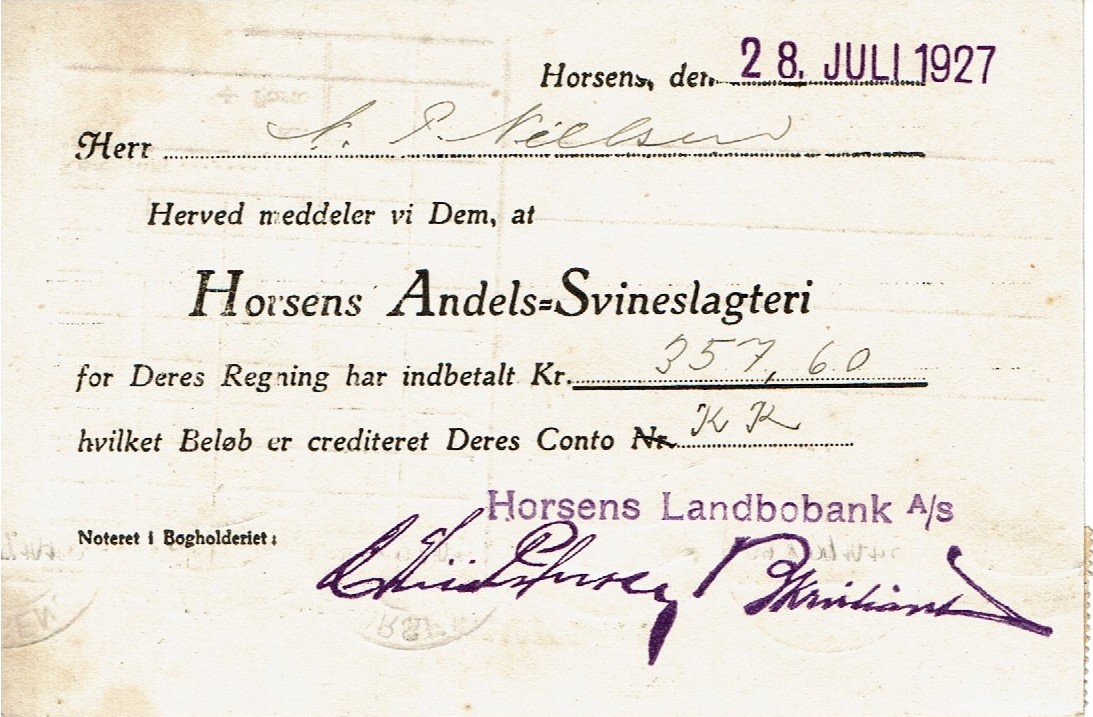 Horsens, den 28. JULI 1927
Herr N. P. Nielsen
Herved meddeler vi Dem, at
Horsens Andels=Svineslagteri
for Deres Regning har indbetalt Kr. 357,60
hvilket Beløb er crediteret Deres Conto Nr. KK
Horsens Landbobank A/s
Noteret i Bogholderiet: